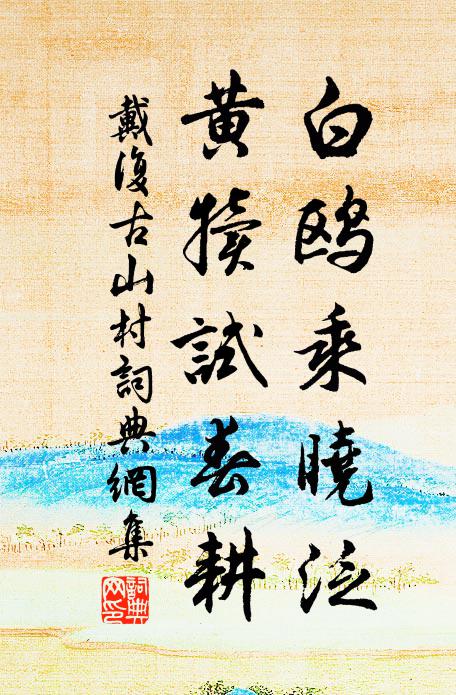 白鷗乘曉泛
黃犢試春耕
戴復古山村詞典網集
詞典網印